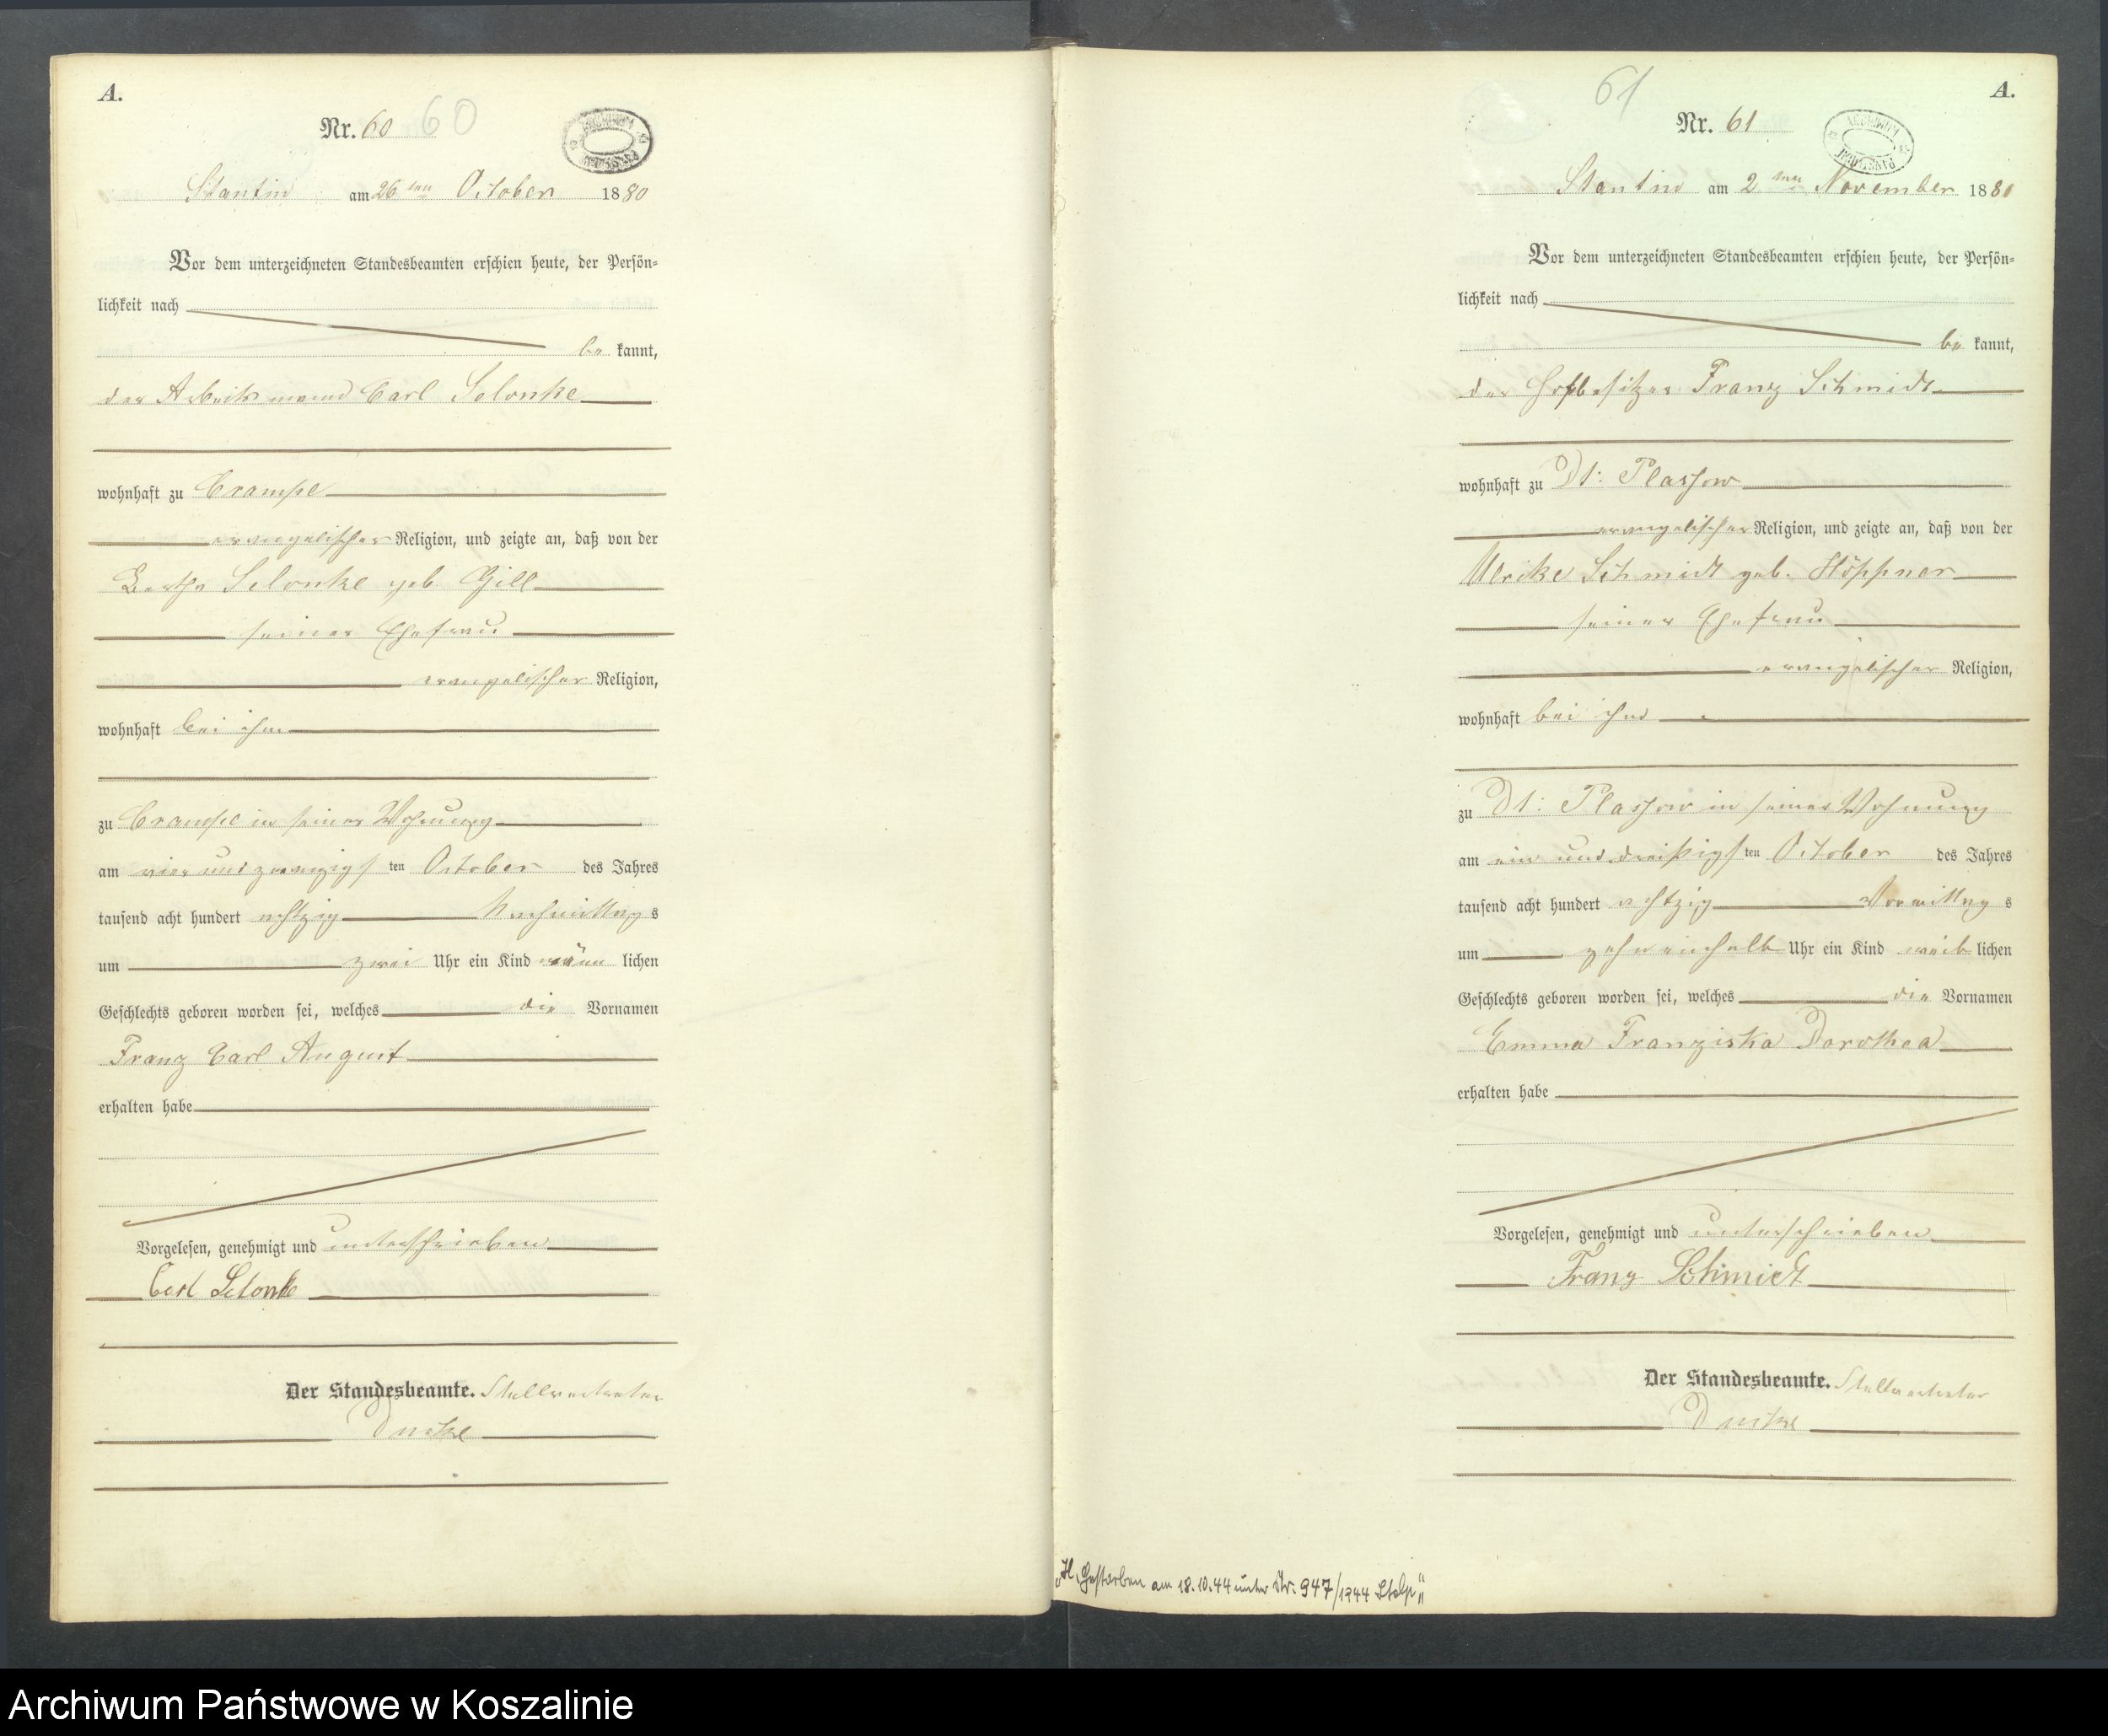 A.
Nr. 60 60
ARCHIWUM
Stantin am 26 ten October 1880
Vor dem unterzeichneten Standesbeamten erschien heute, der Persön-
lichkeit nach
be kannt,
der Arbeitsmann Carl Selonke
wohnhaft zu Crampe
evangelischer Religion, und zeigte an, daß von der
Bertha Selonke geb. Gill
seiner Ehefrau
evangelischer Religion,
wohnhaft bei ihm
zu Crampe in seiner Wohnung
am vier und zwanzigsten October des Jahres
tausend acht hundert achtzig Nachmittags
um zwei Uhr ein Kind männlichen
Geschlechts geboren worden sei, welches die Vornamen
Franz Carl August
erhalten habe
Vorgelesen, genehmigt und unterschrieben
Carl Selonke
Der Standesbeamte. Stellvertreter
61
A.
Nr. 61
ARCHIWUM
Stantin am 2 ten November 1880
Vor dem unterzeichneten Standesbeamten erschien heute, der Persön-
lichkeit nach
be kannt,
der Hofbesitzer Franz Schmidt
wohnhaft zu Dt: Plassow
evangelischer Religion, und zeigte an, daß von der
Ulrike Schmidt geb. Höppner
seiner Ehefrau
evangelischer Religion,
wohnhaft bei ihm
zu Dt: Plassow in seiner Wohnung
am ein und dreißigsten October des Jahres
tausend acht hundert achtzig Vormittags
um zehn einhalb Uhr ein Kind weiblichen
Geschlechts geboren worden sei, welches die Vornamen
Emma Franziska Dorothea
erhalten habe
Vorgelesen, genehmigt und unterschrieben
Franz Schmidt
Der Standesbeamte. Stellvertreter
Gestorben am 18.10.44 unter Nr. 947/1944 Stolp"
Archiwum Państwowe w Koszalinie